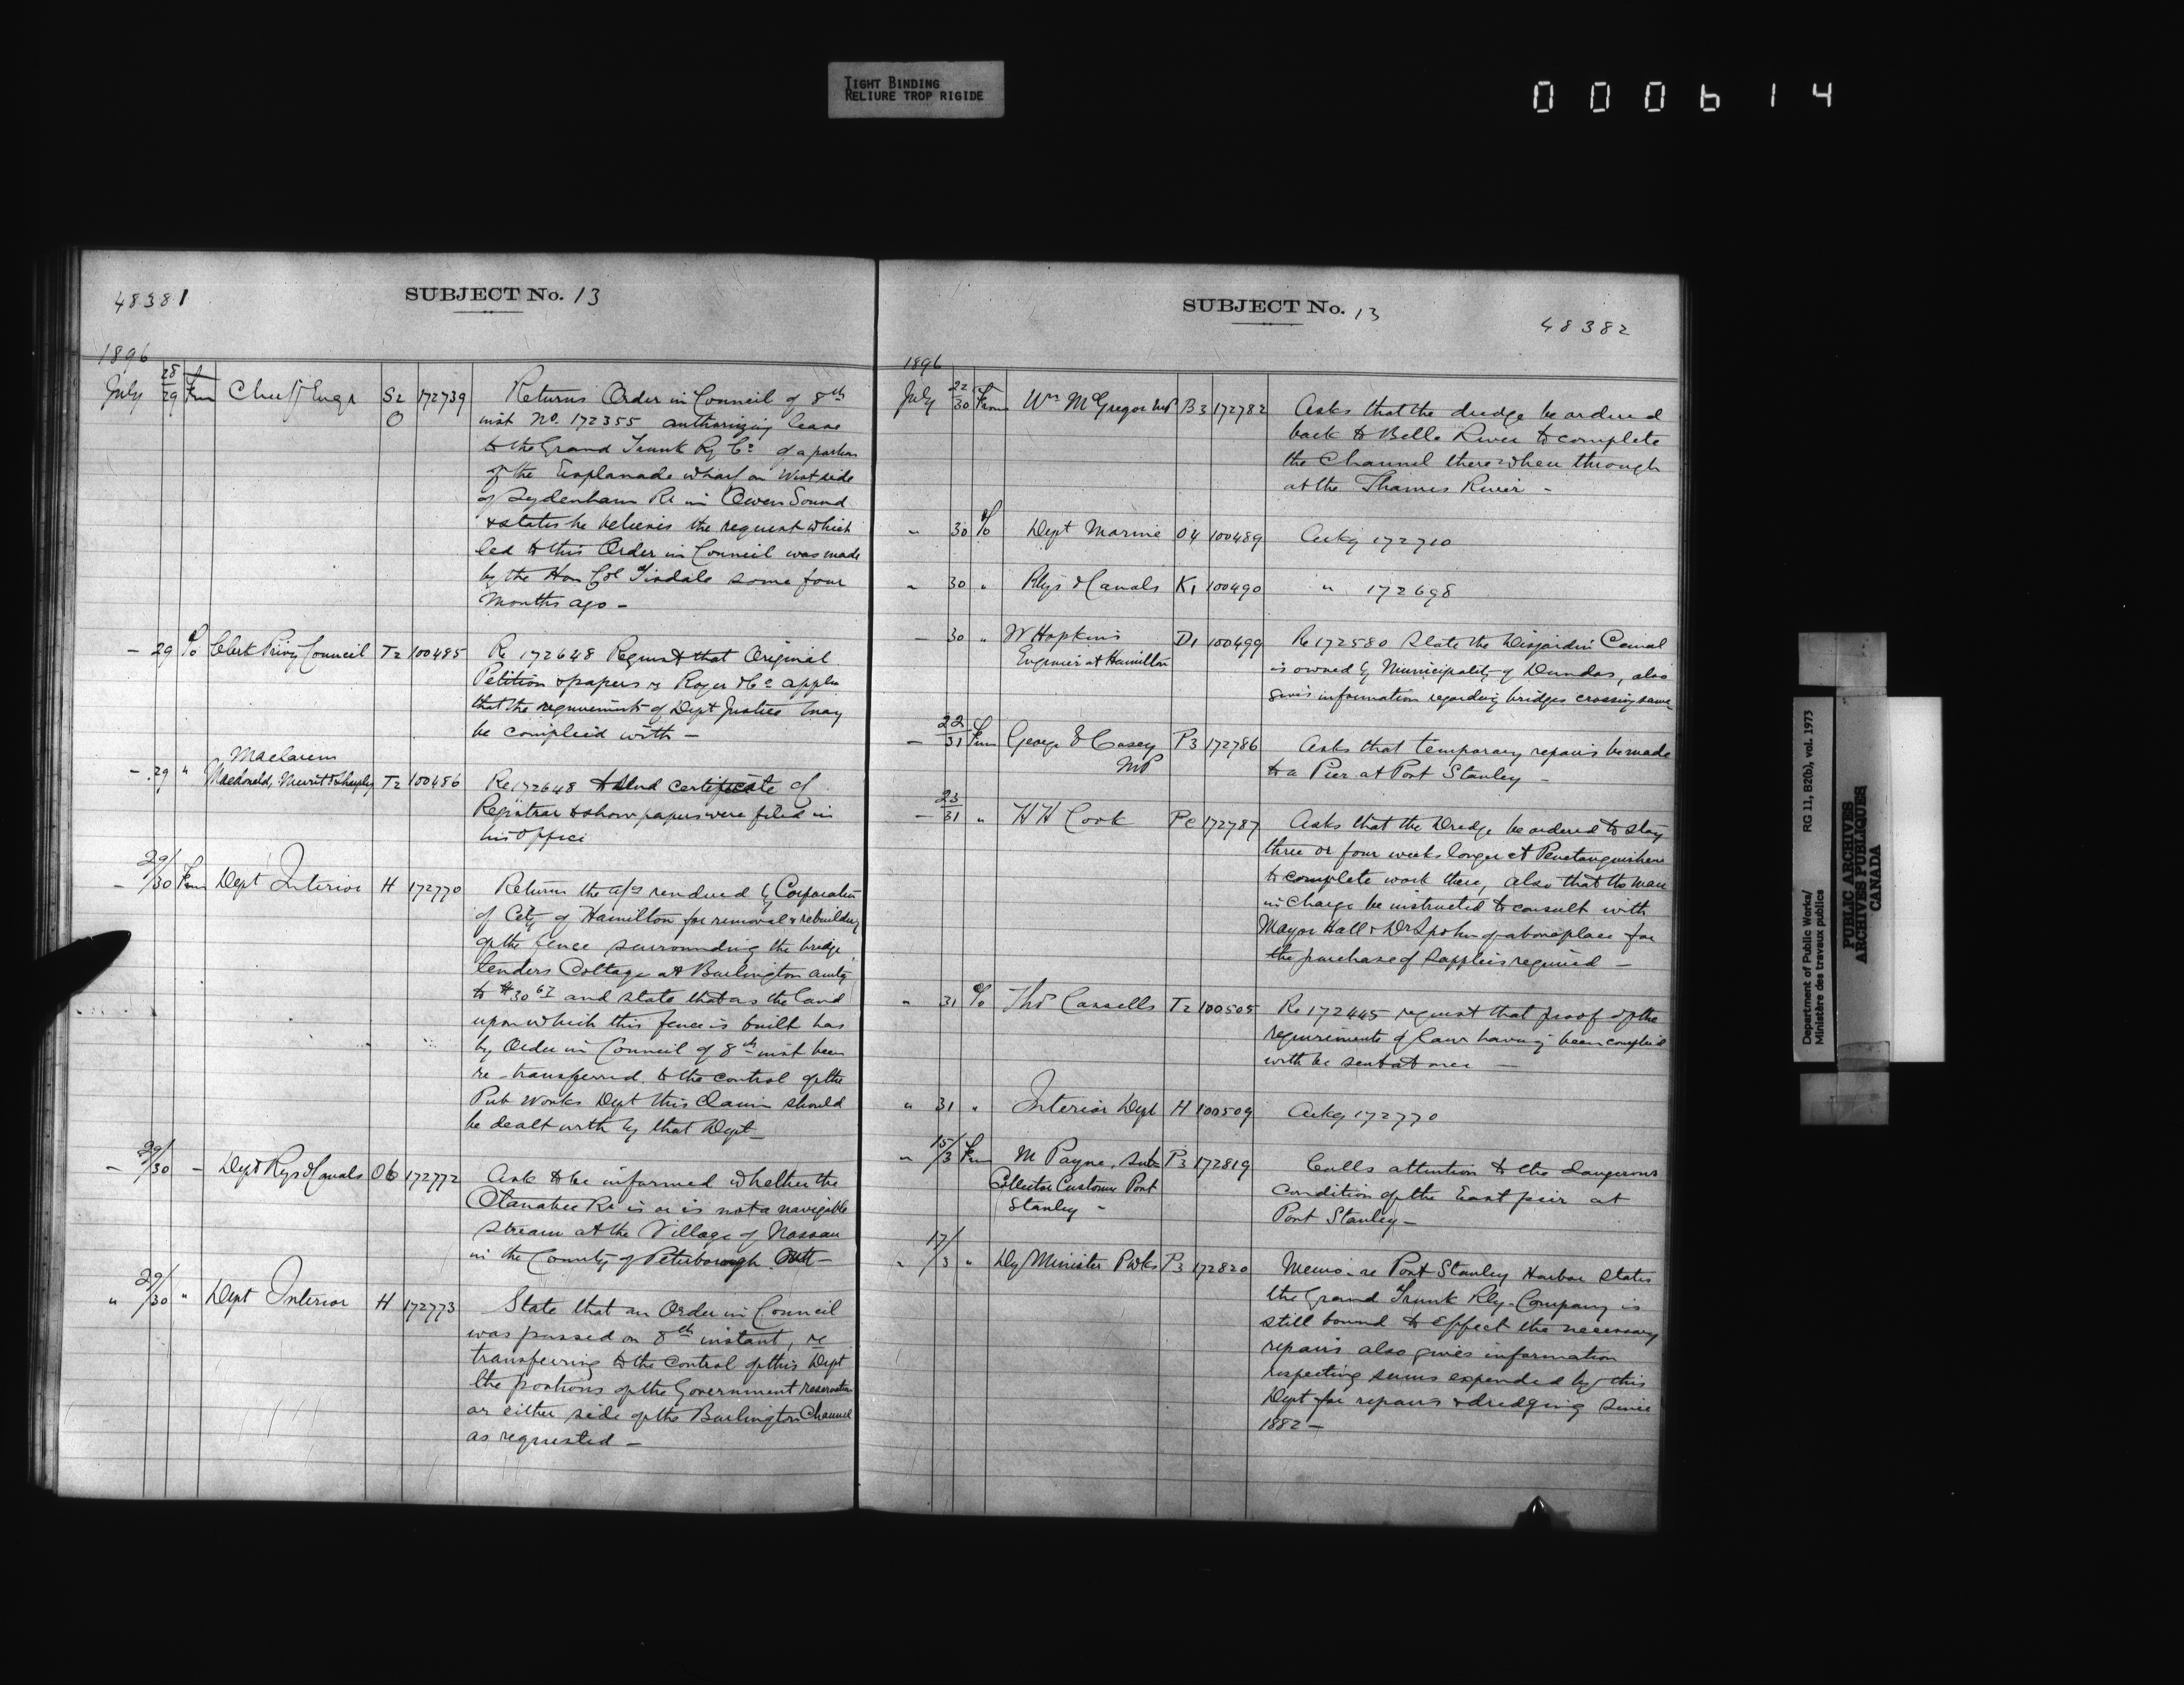 TIGHT BINDING
RELIURE TROP RIGIDE
000614
48381
SUBJECT No. 13
1896
July 28/29 From Chief Engr S2 O 172739 Returns Order in Council of 8th
inst No. 172355 authorizing lease
to the Grand Trunk Ry Co of a portion
of the Esplanade wharf on West side
of Sydenham Rr in Owen Sound
& states he believes the request which
led to this Order in Council was made
by the Hon Col Tisdale some four
months ago -
- 29 To Clerk Privy Council T2 100485 Re 172648 Request that Original
Petition & papers re Roger & Co appln
that the requirements of Dept Justice may
be complied with -
Maclaren
- 29 " Macdonald, Merritt & Shepley T2 100486 Re 172648 to send certificate of
Registrar to show papers were filed in
his office
- 29/30 From Dept Interior H 172770 Returns the a/cs rendered by Corporation
of City of Hamilton for removal & rebuilding
of the fence surrounding the bridge
tenders Cottage at Burlington amtg
to $30 67 and state that as the land
upon which this fence is built has
by Order in Council of 8th inst been
re-transferred to the control of the
Pub Works Dept this Claim should
be dealt with by that Dept -
- 29/30 - Dept Rys & Canals O6 172772 Ask to be informed whether the
Otanabee Rr is or is not a navigable
stream at the Village of Nassau
in the County of Peterborough Ont -
" 29/30 " Dept Interior H 172773 State that an Order in Council
was passed on 8th instant, re
transferring to the control of this Dept
the portions of the Government reservation
on either side of the Burlington Channel
as requested -
SUBJECT No. 13
48382
1896
July 22/30 From Wm McGregor MP B3 172782 Asks that the dredge be ordered
back to Belle River to complete
the Channel there when through
at the Thames River -
" 30 To Dept Marine O4 100489 Ackg 172710
" 30 " Rlys & Canals K1 100490 " 172698
- 30 " W Hopkins D1 100499 Re 172580 State the Desjardin Canal
Engineer at Hamilton is owned by Municipality of Dundas, also
gives information regarding bridges crossing same -
- 22/31 From George E Casey P3 172786 Asks that temporary repairs be made
MP to a Pier at Port Stanley -
- 23/31 " H H Cook Pe 172787 Asks that the Dredge be ordered to stay
three or four weeks longer at Penetanguishene
to complete work there, also that the man
in Charge be instructed to consult with
Mayor Hall & Dr Spohn of above place for
the purchase of supplies required -
" 31 To Thos Cassells T2 100505 Re 172445 request that proof of the
requirements of law having been complied
with be sent at once -
" 31 " Interior Dept H 100509 Ackg 172770
" 15/3 From M Payne, Sub P3 172819 Calls attention to the dangerous
Collector Customs Port condition of the East pier at
Stanley - Port Stanley -
" 17/3 " Dy Minister P Wks P3 172820 Memo. re Port Stanley Harbor States
the Grand Trunk Rly. Company is
still bound to effect the necessary
repairs also gives information
respecting sums expended by this
Dept for repairs & dredging since
1882 -
Department of Public Works/
Ministère des travaux publics
RG 11, B2(b), vol. 1973
PUBLIC ARCHIVES
ARCHIVES PUBLIQUES
CANADA